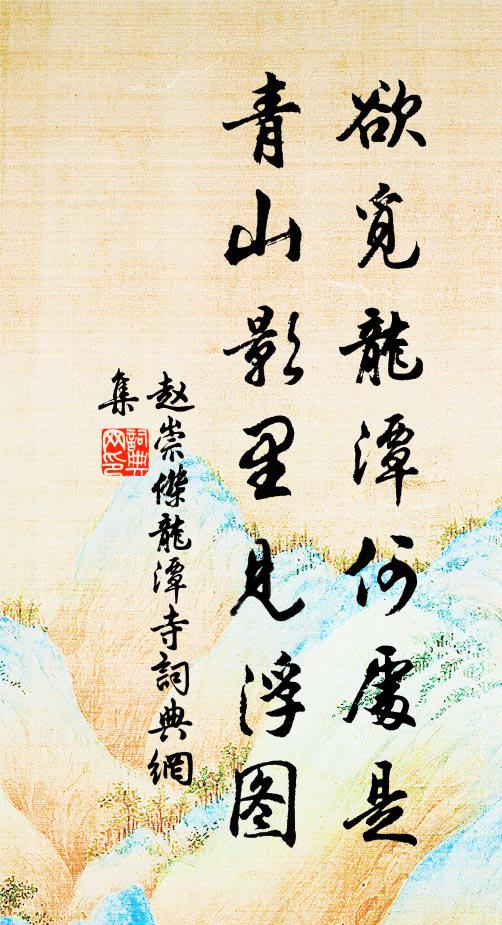 欲覓龍潭何處是
青山影里見浮图
赵崇傑龍潭寺詞典網
集
詞典网印